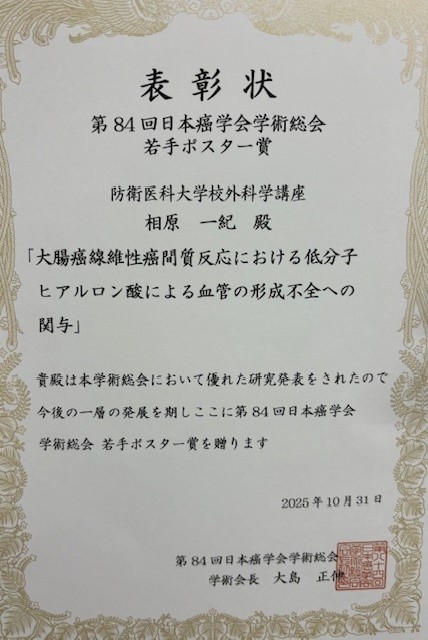 表彰状
第84回日本癌学会学術総会
若手ポスター賞
防衛医科大学校外科学講座
相原 一紀 殿
「大腸癌線維性癌間質反応における低分子
ヒアルロン酸による血管の形成不全への
関与」
貴殿は本学術総会において優れた研究発表をされたので
今後の一層の発展を期しここに第84回日本癌学会
学術総会 若手ポスター賞を贈ります
2025年10月31日
第84回日本癌学会学術総会
学術会長 大島 正伸